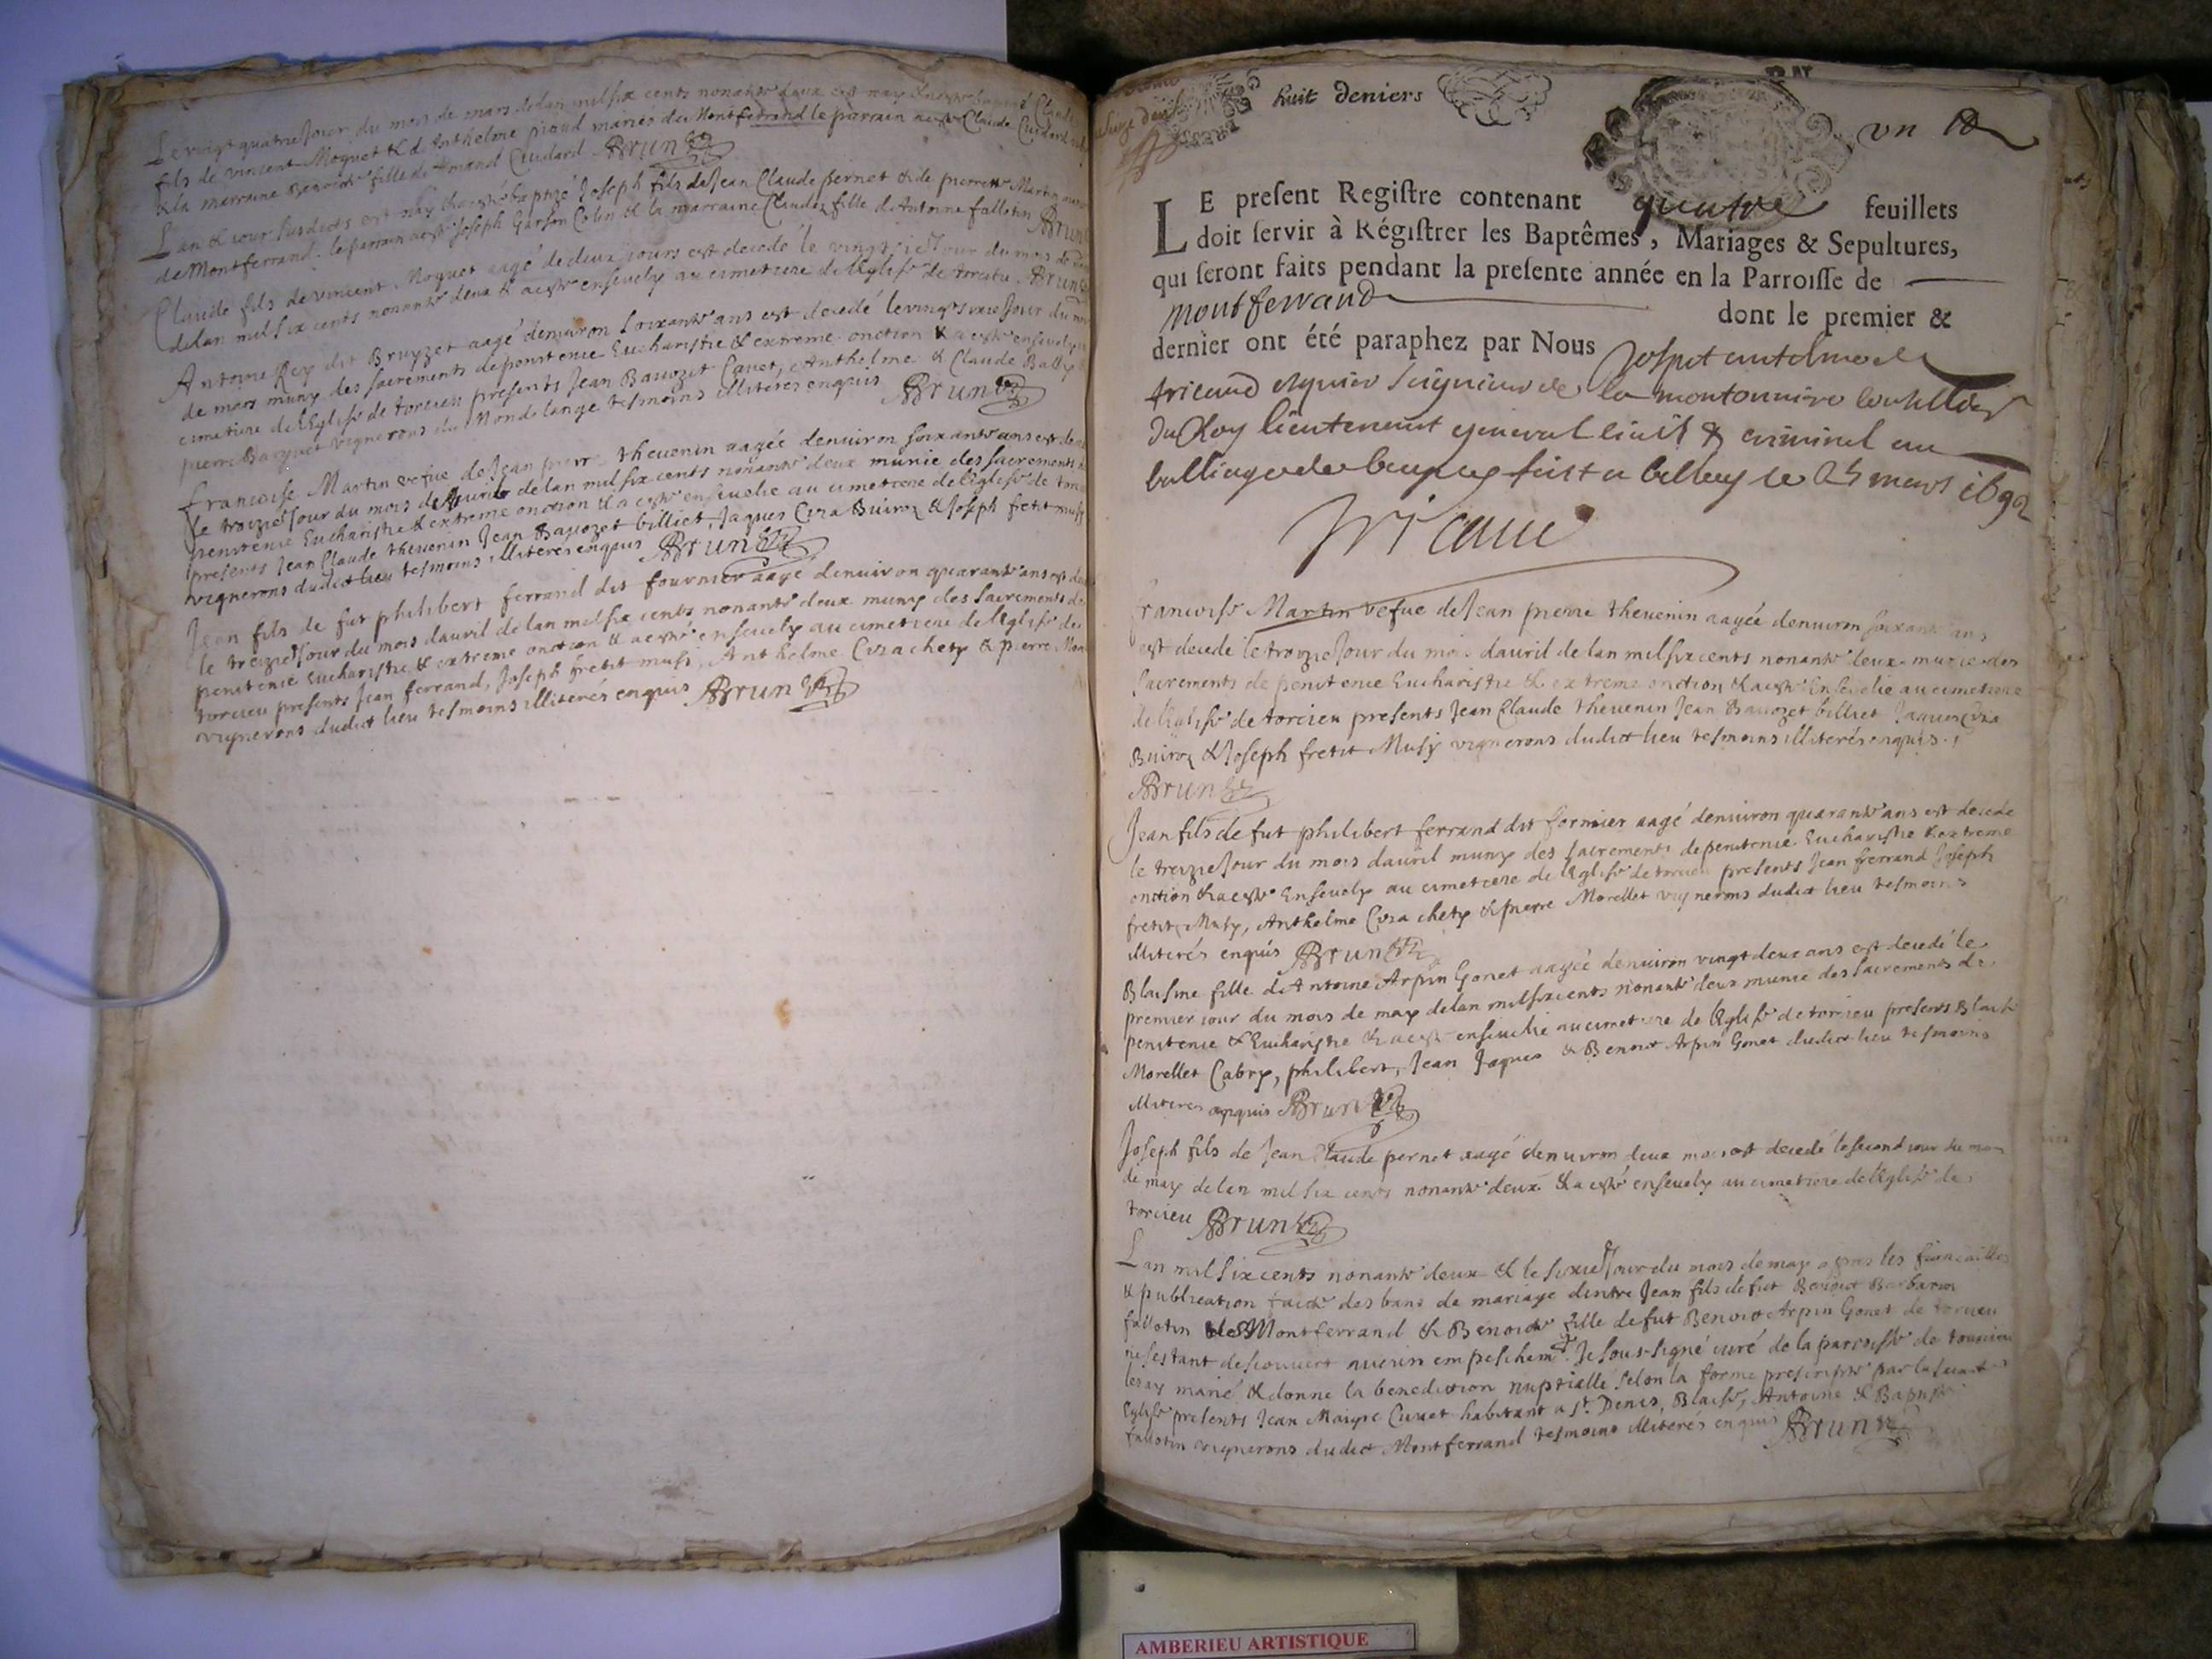 Le vingt quatrie Jour du mois de mars de lan mil six cents nonante deux est nay Claude
fils de vincent Moguet & d Anthelme pioud mariés du Montferrand le parrain Claude Cuidard
& la marraine Benoite fille de Amand Cuidard Brun
Lan & jour susdicts est nay & a esté baptizé Joseph fils de Jean Claude pernet & de pierrette Martin
de Montferrand. le parrain a esté Joseph Garson Colin & la marraine Claudaz fille d Antoine fallotin Brun
Claude fils de vincent Moguet aagé de deux jours est decedé le vingt sixie Jour du mois de
de lan mil six cents nonante deux & a esté ensevely au cimetiere de leglise de torcieu. Brun
Antoine Rey dit Bruyzet aagé denuiron soixante ans est decedé le vingt sixie Jour du mois
de mars muny des sacrements de penitence Eucharistie & extreme onction & a esté ensevely
cimetiere de lEglise de torcieu presents Jean Bavozet Cavet, Anthelme & Claude Bally
pierre Barquet vignerons du Monde lange tesmoins illiteres enquis Brun
francoise Martin vefue de Jean pierre thevenin aagée denuiron soixante ans est
le troizie Jour du mois de Avrile de lan mil six cents nonante deux munie des sacrements
penitence Eucharistie & extreme onction & a esté ensevelie au cimetiere de leglise de
presents Jean Claude thevenin Jean Bavozet billiet, Jaques Cura Buiroz & Joseph fretit musy
vignerons dudict lieu tesmoins illiterés enquis Brun
Jean fils de fut philibert ferrand dit fournier aagé denuiron quarante ans est
le treizie Jour du mois dauril de lan mil six cents nonante deux muny des sacrements de
penitence Eucharistie & extreme onction & a esté ensevely au cimetiere de lEglise de
torcieu presents Jean ferrand, Joseph fretit musi, Anthelme Cura chety & pierre
vignerons dudict lieu tesmoins illiterés enquis Brun
huit deniers
vn
LE present Registre contenant quatre feuillets
doit servir à Régistrer les Baptêmes, Mariages & Sepultures,
qui seront faits pendant la presente année en la Parroisse de
montferrand dont le premier &
dernier ont été paraphez par Nous Josept antelme de
tricaud seigneur de la montonniere
du Roy lieutenant general ciuil & criminel au
balliage de bugey fait a belley le 24 mars 1692
Tricaud
francoise Martin vefue de Jean pierre thevenin aagée denuiron soixante ans
est decede le troizie Jour du mois dauril de lan mil six cents nonante deux munie des
sacrements de penitence Eucharistie & extreme onction & a esté Ensevelie au cimetiere
de lEglise de torcieu presents Jean Claude thevenin Jean Bavozet billiet Jaques Cura
Buiroz & Joseph fretit Musy vignerons dudict lieu tesmoins illiterés enquis.
Brun
Jean fils de fut philibert ferrand dit fornier aagé denuiron quarante ans est decede
le treizie Jour du mois dauril muny des sacrements de penitence Eucharistie & extreme
onction & a esté Ensevely au cimetiere de lEglise de torcieu presents Jean ferrand Joseph
fretit Musy, Anthelme Cura chety & pierre Morellet vignerons dudict lieu tesmoins
illiterés enquis Brun
Blaisine fille d Antoine Arpin Gonet aagée denuiron vingt deux ans est decedé le
premier jour du mois de may de lan mil six cents nonante deux munie des sacrements de
penitence & Eucharistie & a esté ensevelie au cimetiere de lEglise de torcieu presents Blaise
Morellet Cabry, philibert, Jean Jaques & Benoit Arpin Gonet dudict lieu tesmoins
illiteres enquis Brun
Joseph fils de Jean Claude pernet aagé denuiron deux mois est decedé le second jour du mois
de may de lan mil six cents nonante deux & a esté ensevely au cimetiere de lEglise de
torcieu Brun
Lan mil six cents nonante deux & le sixie Jour du mois de may apres les fiancailles
& publication faicte des bans de mariage dentre Jean fils de fut Benoit Barbarin
fallotin de Montferrand & Benoicte fille de fut Benoit Arpin Gonet de torcieu
ne sestant descouvert aucun empeschemt Je sous-signé curé de la paroisse de torcieu
les ay marié & donne la benediction nuptialle selon la forme prescripte par la sainte
Eglise presents Jean Maigre Cunet habitant a St Denis, Blaise, Antoine & Baptiste
fallotin vignerons dudict Montferrand tesmoins illiterés enquis Brun
AMBERIEU ARTISTIQUE